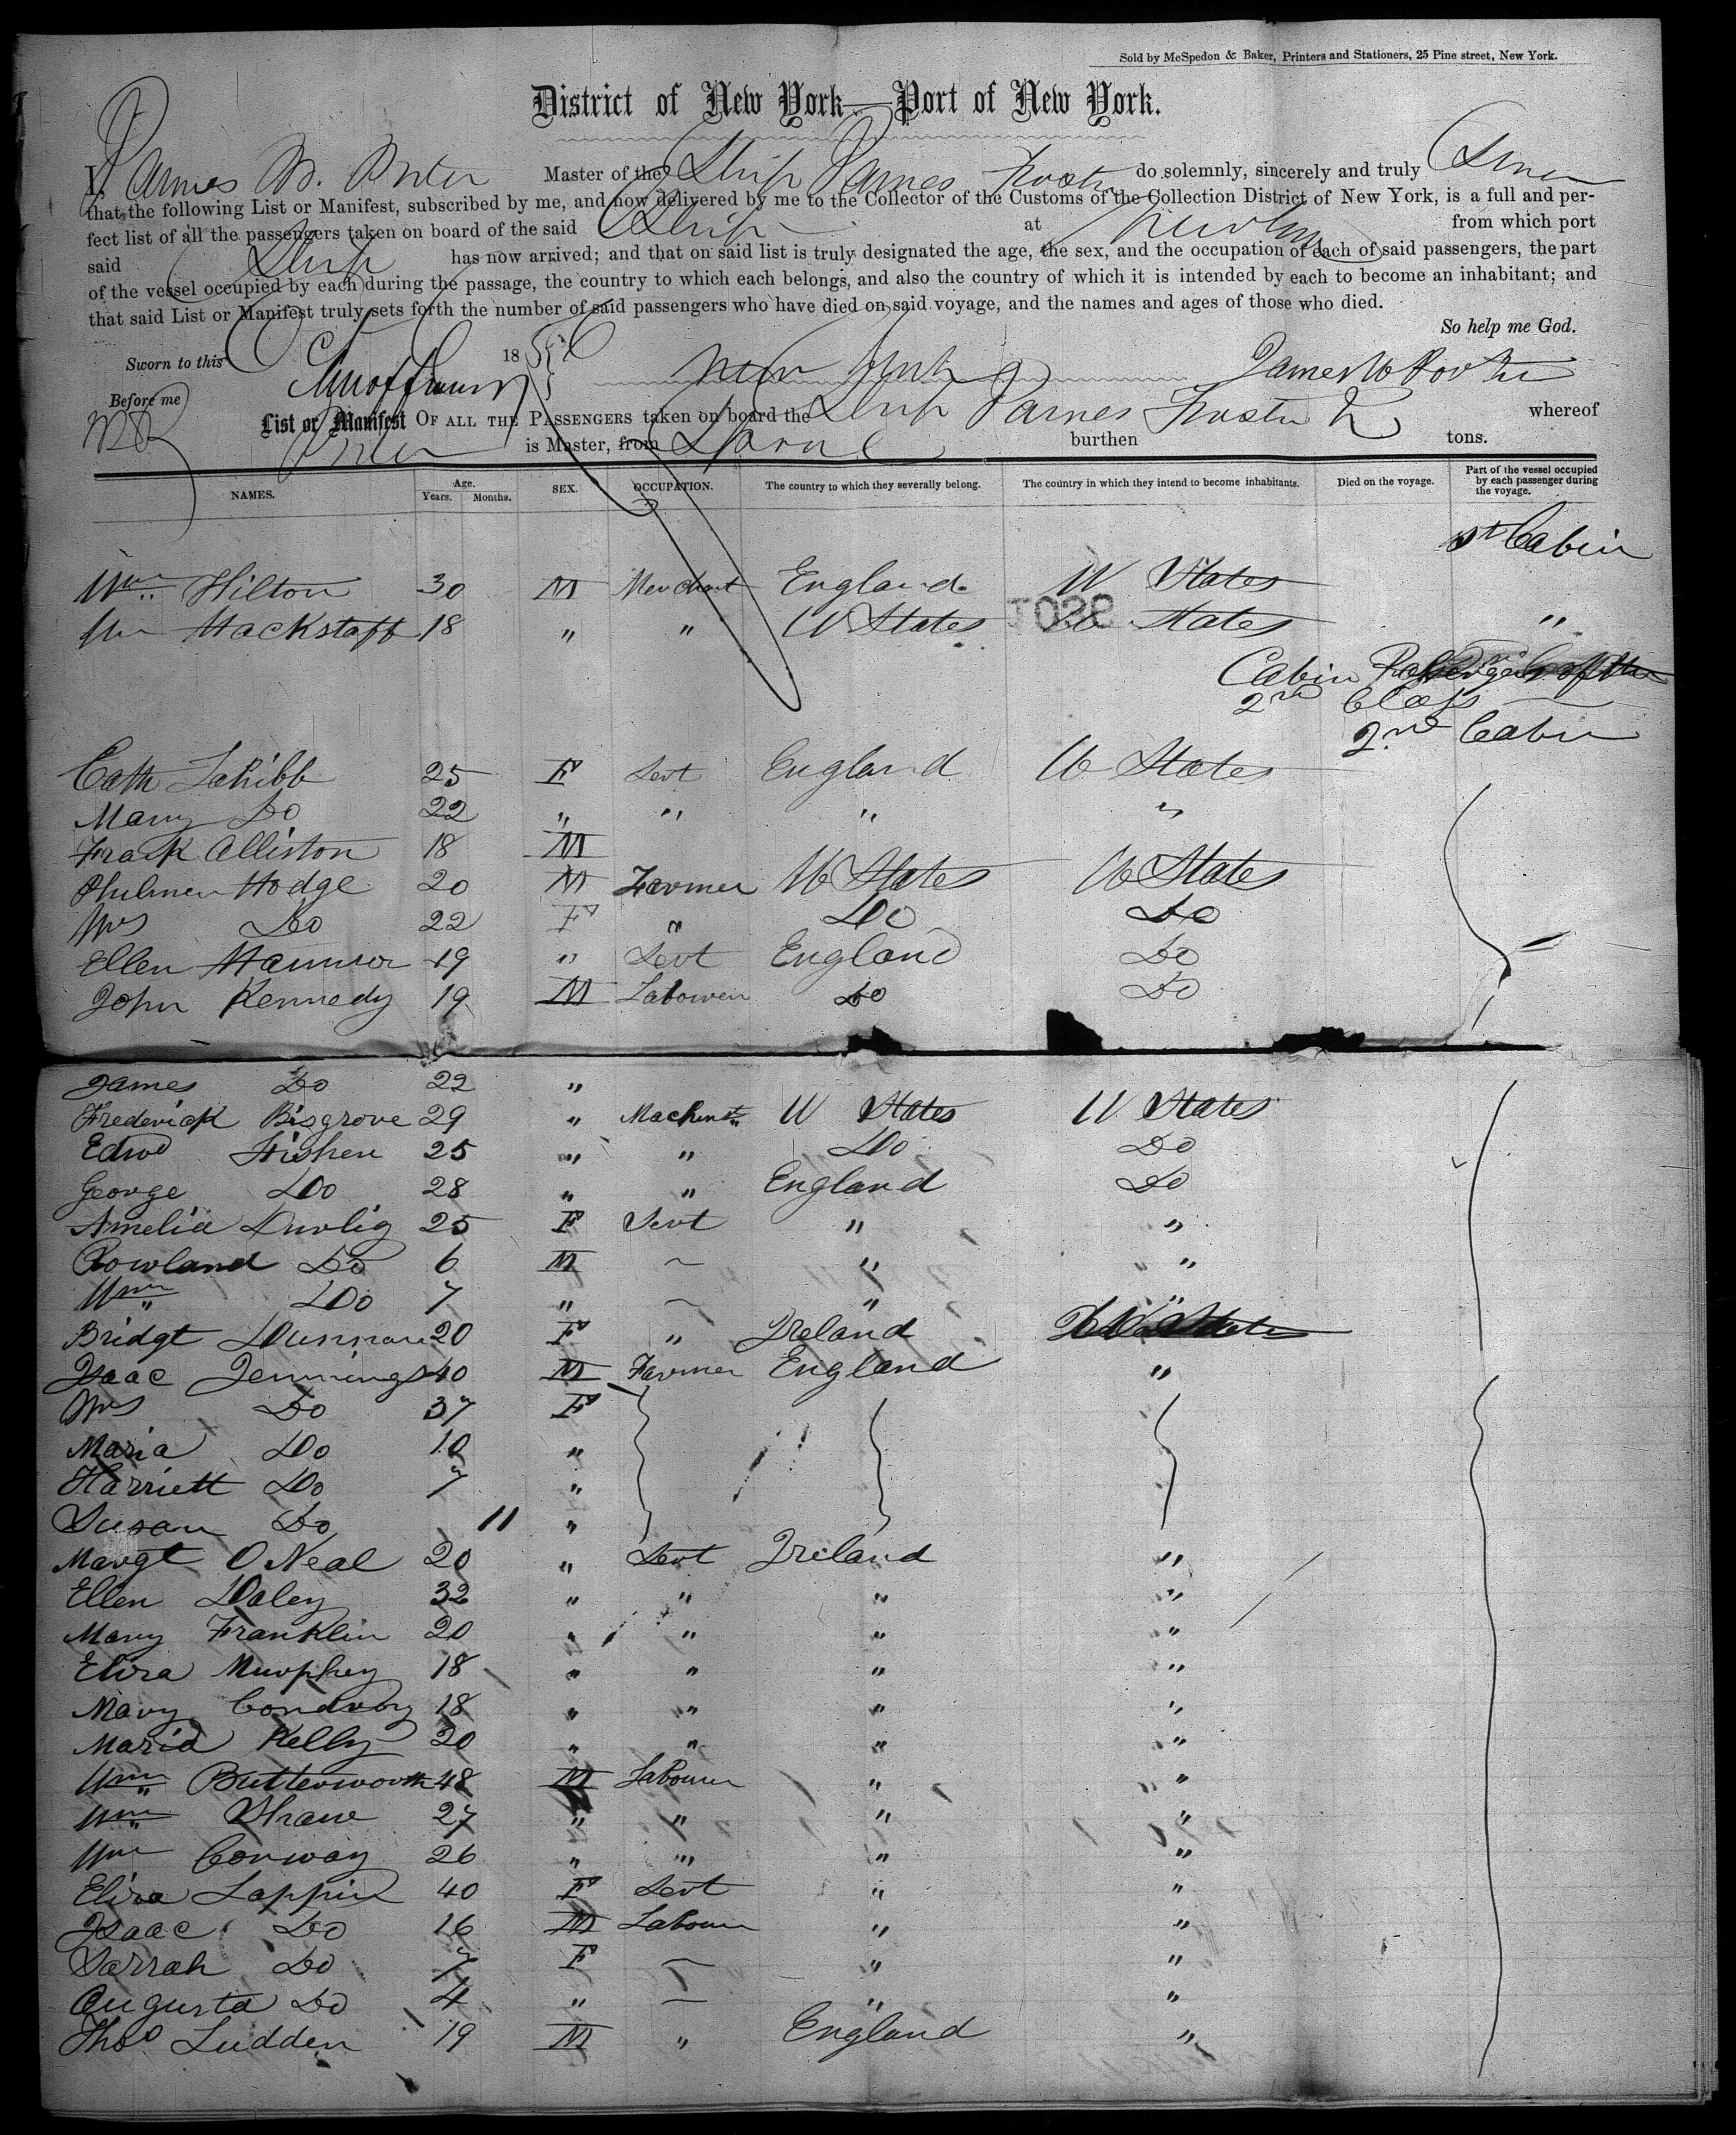 Sold by McSpedon & Baker, Printers and Stationers, 25 Pine street, New York.
District of New York—Port of New York.
I, James Master of the Ship James Foster do solemnly, sincerely and truly
that the following List or Manifest, subscribed by me, and now delivered by me to the Collector of the Customs of the Collection District of New York, is a full and per-
fect list of all the passengers taken on board of the said Ship at from which port
said Ship has now arrived; and that on said list is truly designated the age, the sex, and the occupation of each of said passengers, the part
of the vessel occupied by each during the passage, the country to which each belongs, and also the country of which it is intended by each to become an inhabitant; and
that said List or Manifest truly sets forth the number of said passengers who have died on said voyage, and the names and ages of those who died.
So help me God.
Sworn to this 18 New York
Before me
List or Manifest OF ALL THE PASSENGERS taken on board the Ship James Foster whereof
is Master, from burthen tons.
NAMES. Age. Years. Months. SEX. OCCUPATION. The country to which they severally belong. The country in which they intend to become inhabitants. Died on the voyage. Part of the vessel occupied by each passenger during the voyage.
1st Cabin
Wm Hilton 30 M Merchant England U States
Wm Hackstaff 18 " " U States U States "
Cabin
2nd Class
2nd Cabin
Cath Lahibb 25 F Servt England U States
Mary Do 22 " " " "
Frank Alliston 18 M
Philmen Hodge 20 M Farmer U States U States
Mrs Do 22 F " Do Do
Ellen 19 " Servt England Do
John Kennedy 19 M Labourer Do Do
James Do 22 "
Frederick Bisgrove 29 " Machinst U States U States
Edwd Fisher 25 " " Do Do
George Do 28 " " England Do
Amelia Durlig 25 F Servt " "
Rowland Do 6 M — " "
Wm Do 7 " — " "
Bridgt 20 F " Ireland
Isaac Jennings 40 M Farmer England "
Mrs Do 37 F
Maria Do 10 "
Harriett Do 7 "
Susan Do 11 "
Margt O Neal 20 " Servt Ireland "
Ellen Daley 32 " " " "
Mary Franklin 20 " " " "
Eliza Murphey 18 " " " "
Mary Condroy 18 " " " "
Maria Kelly 20 " " " "
Wm Butterworth 48 M Labourer " "
Wm Shaw 27 " " " "
Wm Conway 26 " " " "
Eliza Lappin 40 F Servt " "
Isaac Do 16 M Labourer " "
Sarrah Do 7 F — " "
Augusta Do 4 " — " "
Thos Ludden 19 M " England "